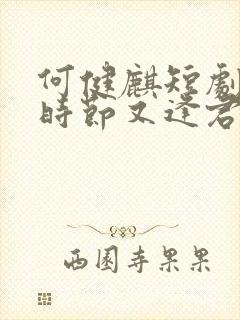 何健麒短劇
時節又逢君
西園寺果果